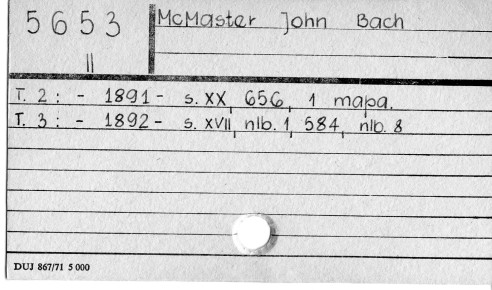 5653 McMaster John Bach
II
T. 2: - 1891 - s. XX, 656, 1 mapa.
T. 3: - 1892 - s. XVII, nlb. 1, 584, nlb. 8
DUJ 867/71 5 000